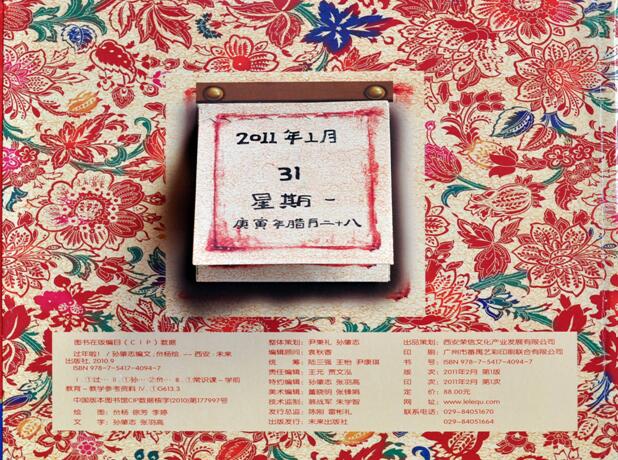 2011年1月
31
星期一
庚寅年腊月二十八
图书在版编目(CIP)数据
过年啦! / 孙肇志编文;贠杨绘. -- 西安:未来
出版社, 2010.9
ISBN 978-7-5417-4094-7
Ⅰ.①过… Ⅱ.①孙…②贠… Ⅲ.①常识课-学前
教育-教学参考资料 Ⅳ.①G613.3
中国版本图书馆CIP数据核字(2010)第177997号
绘 图: 贠杨 徐芳 李婷
文 字: 孙肇志 张羽高
整体策划: 尹秉礼 孙肇志
编辑顾问: 袁秋香
统 筹: 陆三强 王怡 尹康琪
责任编辑: 王元 贾文泓
特约编辑: 孙肇志 张羽高
美术编辑: 董晓明 张锋娟
技术监制: 慕战军 宋宇智
发行总监: 陈刚 雷彬礼
出版发行: 未来出版社
出品策划: 西安荣信文化产业发展有限公司
印 刷: 广州市番禺艺彩印刷联合有限公司
书 号: ISBN 978-7-5417-4094-7
版 次: 2011年2月 第1版
印 次: 2011年2月 第1次
定 价: 88.00元
网 址: www.lelequ.com
联系电话: 029-84051670
029-84051664